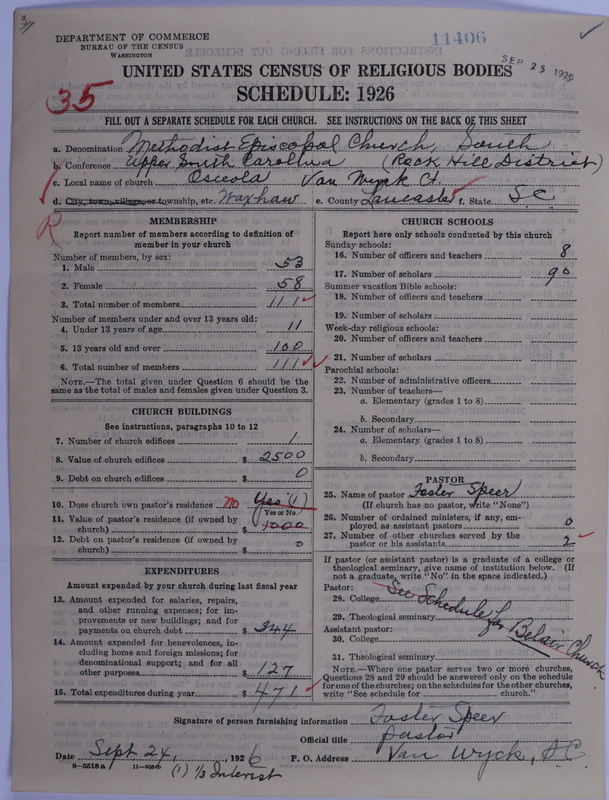 DEPARTMENT OF COMMERCE
BUREAU OF THE CENSUS
WASHINGTON
11406
SEP 25 1926
UNITED STATES CENSUS OF RELIGIOUS BODIES
SCHEDULE: 1926
35
FILL OUT A SEPARATE SCHEDULE FOR EACH CHURCH. SEE INSTRUCTIONS ON THE BACK OF THIS SHEET
a. Denomination Methodist Episcopal Church, South
b. Conference Upper South Carolina (Rock Hill District)
c. Local name of church Osceola Van Wyck Ct.
d. City, town, village, or township, etc. Waxhaw e. County Lancaster f. State S.C.
MEMBERSHIP
Report number of members according to definition of
member in your church
Number of members, by sex:
1. Male 53
2. Female 58
3. Total number of members 111
Number of members under and over 13 years old:
4. Under 13 years of age 11
5. 13 years old and over 100
6. Total number of members 111
NOTE.—The total given under Question 6 should be the
same as the total of males and females given under Question 3.
CHURCH BUILDINGS
See instructions, paragraphs 10 to 12
7. Number of church edifices 1
8. Value of church edifices $ 2500
9. Debt on church edifices $ 0
10. Does church own pastor's residence No Yes (1)
Yes or No
11. Value of pastor's residence (if owned by
church) $ 1000
12. Debt on pastor's residence (if owned by
church) $ 0
EXPENDITURES
Amount expended by your church during last fiscal year
13. Amount expended for salaries, repairs,
and other running expenses; for im-
provements or new buildings; and for
payments on church debt $ 344
14. Amount expended for benevolences, in-
cluding home and foreign missions; for
denominational support; and for all
other purposes $ 127
15. Total expenditures during year $ 471
CHURCH SCHOOLS
Report here only schools conducted by this church
Sunday schools:
16. Number of officers and teachers 8
17. Number of scholars 90
Summer vacation Bible schools:
18. Number of officers and teachers
19. Number of scholars
Week-day religious schools:
20. Number of officers and teachers
21. Number of scholars
Parochial schools:
22. Number of administrative officers
23. Number of teachers—
a. Elementary (grades 1 to 8)
b. Secondary
24. Number of scholars—
a. Elementary (grades 1 to 8)
b. Secondary
PASTOR
25. Name of pastor Foster Speer
(If church has no pastor, write "None")
26. Number of ordained ministers, if any, em-
ployed as assistant pastors 0
27. Number of other churches served by the
pastor or his assistants 2
If pastor (or assistant pastor) is a graduate of a college or
theological seminary, give name of institution below. (If
not a graduate, write "No" in the space indicated.)
Pastor:
28. College See Schedule for Belair Church
29. Theological seminary
Assistant pastor:
30. College
31. Theological seminary
NOTE.—Where one pastor serves two or more churches,
Questions 28 and 29 should be answered only on the schedule
for one of the churches; on the schedules for the other churches,
write "See schedule for church."
Signature of person furnishing information Foster Speer
Official title Pastor
Date Sept 24, 1926 P. O. Address Van Wyck, S.C.
8—5518 a
(1) 1/3 Interest